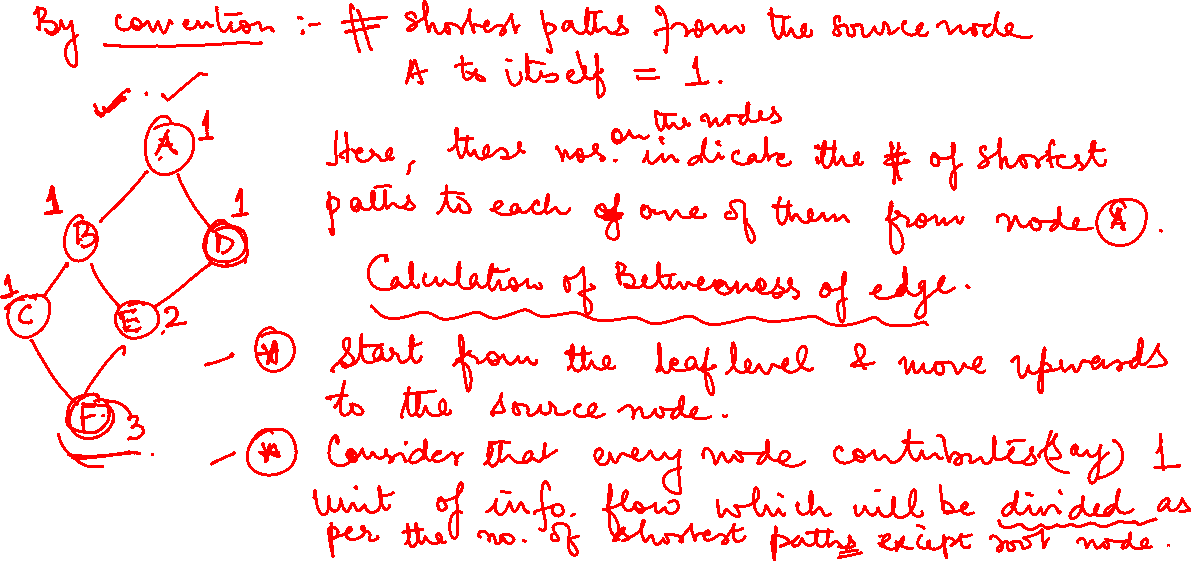 By convention :- # shortest paths from the source node
A to itself = 1.
A 1
Here, these nos. on the nodes indicate the # of shortest
paths to each of one of them from node A.
1 B
1 D
Calculation of Betweenness of edge.
1 C
E 2
* Start from the leaf level & move upwards
to the source node.
F 3
* Consider that every node contributes (say) 1
unit of info. flow which will be divided as
per the no. of shortest paths except root node.